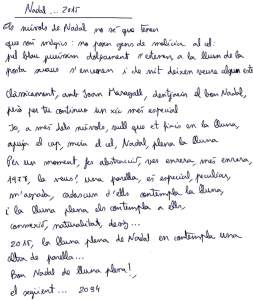 Nadal... 2015
Els núvols de Nadal no sé què tenen
que són màgics: no porten gens de malícia al cel:
pel blau puríssim dolçament s'estenen a la llum de la
posta suaus s'encenen i de nit deixen veure algun estel
Clàssicament, amb Joan Maragall, dentíem el bon Nadal,
però per tu continuo un xic més especial
Jo, a més dels núvols, vull que et fixis en la lluna,
aquí el cap, mira el cel, Nadal, plena la lluna
Per un moment, fes abstracció, ves enrera, més enrera,
1977, la veus? una parella, és especial, peculiar,
m'agrada, cadascun d'ells contempla la lluna,
i la lluna plena els contempla a ells,
connexió, naturalitat, desig...
2015, la lluna plena de Nadal en contempla una
altra de parella...
Bon Nadal de lluna plena!,
el següent... 2034